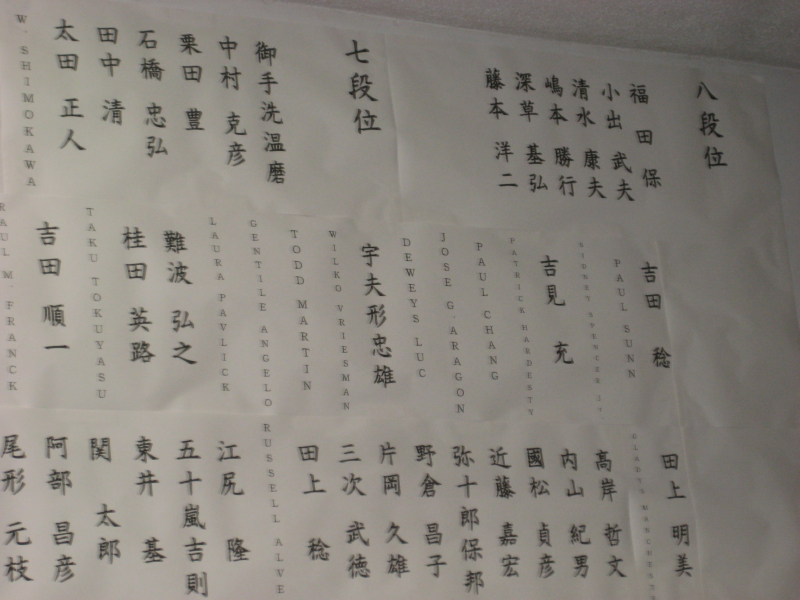 八段位
福田保
小出 武夫
清水 康夫
嶋本 勝行
深草 基弘
藤本 洋二
七段位
御手洗温磨
中村 克彦
栗田 豊
石橋 忠弘
田中 清
太田 正人
W. SHIMOKAWA
吉田 稔
PAUL SUNN
PATRICK HARDESTY
吉見 充
PAUL CHANG
JOSE G. ARAGON
DEWEYS LUC
宇夫形忠雄
WILKO VRIESMAN
TODD MARTIN
GENTILE ANGELO
LAURA PAVLICK
難波 弘之
桂田 英路
TAKU TOKUYASU
吉田 順一
RAUL M. FRANCK
田上 明美
高岸 哲文
内山 紀男
國松 貞彦
近藤 嘉宏
弥十郎保邦
野倉 昌子
片岡 久雄
三次 武徳
田上 稔
RUSSELL ALVE
江尻 隆
五十嵐吉則
東井 基
関 太郎
阿部 昌彦
尾形 元枝